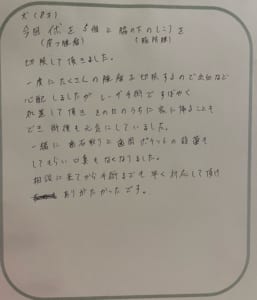 犬(8才)
今回 イボを5個と脇の下のしこりを
(皮フ腫瘤) (脂肪腫)
切除して頂きました。
一度にたくさんの腫瘤を切除するので出血など
心配しましたが レーザー手術ですばやく
処置して頂き その日のうちに家に帰ることも
でき 術後も元気にしていました。
一緒に 歯石取りと歯周ポケットの 処置も
してもらい 口臭もなくなりました。
相談に来てから手術までも早く対応して頂け
ありがたかったです。